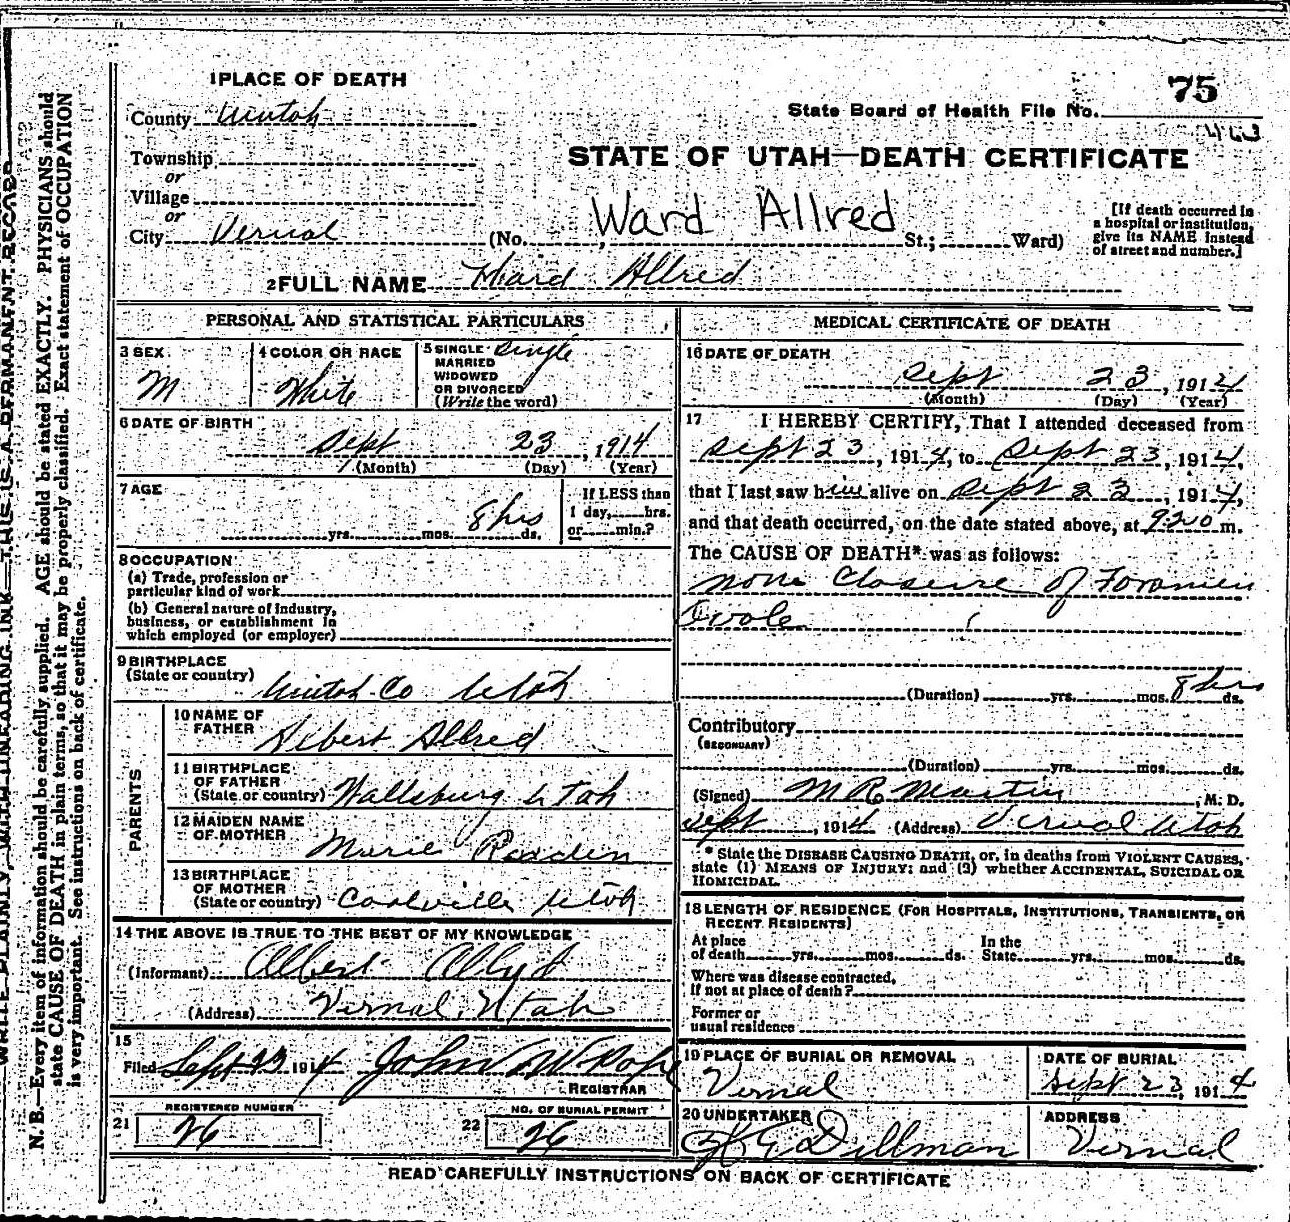 1 PLACE OF DEATH
County Uintah
Township
or
Village
or
City Vernal
State Board of Health File No. 75
463
STATE OF UTAH—DEATH CERTIFICATE
Ward Allred
(No. , St.; Ward)
[If death occurred in
a hospital or institution,
give its NAME instead
of street and number.]
2 FULL NAME Ward Allred
PERSONAL AND STATISTICAL PARTICULARS
3 SEX
M
4 COLOR OR RACE
White
5 SINGLE Single
MARRIED
WIDOWED
OR DIVORCED
(Write the word)
6 DATE OF BIRTH
Sept 23, 1914
(Month) (Day) (Year)
7 AGE
8 hrs
yrs. mos. ds.
If LESS than
1 day, hrs.
or min.?
8 OCCUPATION
(a) Trade, profession or
particular kind of work
(b) General nature of industry,
business, or establishment in
which employed (or employer)
9 BIRTHPLACE
(State or country) Uintah Co Utah
PARENTS
10 NAME OF
FATHER Albert Allred
11 BIRTHPLACE
OF FATHER
(State or country) Wallsburg Utah
12 MAIDEN NAME
OF MOTHER Marie
13 BIRTHPLACE
OF MOTHER
(State or country) Coalville Utah
14 THE ABOVE IS TRUE TO THE BEST OF MY KNOWLEDGE
(Informant) Albert Allred
(Address) Vernal, Utah
15
Filed Sept 23 1914 John W Pope
REGISTRAR
21 REGISTERED NUMBER
26
22 NO. OF BURIAL PERMIT
26
MEDICAL CERTIFICATE OF DEATH
16 DATE OF DEATH
Sept 23, 1914
(Month) (Day) (Year)
17 I HEREBY CERTIFY, That I attended deceased from
Sept 23, 1914, to Sept 23, 1914,
that I last saw him alive on Sept 23, 1914,
and that death occurred, on the date stated above, at 920 m.
The CAUSE OF DEATH* was as follows:
none Closure of Foramen
Ovale
(Duration) yrs. mos. 8 hrs ds.
Contributory
(SECONDARY)
(Duration) yrs. mos. ds.
(Signed) M R Martin, M. D.
Sept, 1914 (Address) Vernal Utah
* State the DISEASE CAUSING DEATH, or, in deaths from VIOLENT CAUSES,
state (1) MEANS OF INJURY; and (2) whether ACCIDENTAL, SUICIDAL OR
HOMICIDAL.
18 LENGTH OF RESIDENCE (FOR HOSPITALS, INSTITUTIONS, TRANSIENTS, OR
RECENT RESIDENTS)
At place
of death yrs. mos. ds.
In the
State yrs. mos. ds.
Where was disease contracted,
if not at place of death?
Former or
usual residence
19 PLACE OF BURIAL OR REMOVAL
Vernal
DATE OF BURIAL
Sept 23, 1914
20 UNDERTAKER
Dillman
ADDRESS
Vernal
READ CAREFULLY INSTRUCTIONS ON BACK OF CERTIFICATE
WRITE PLAINLY, WITH UNFADING INK—THIS IS A PERMANENT RECORD
N. B.—Every item of information should be carefully supplied. AGE should be stated EXACTLY. PHYSICIANS should
state CAUSE OF DEATH in plain terms, so that it may be properly classified. Exact statement of OCCUPATION
is very important. See instructions on back of certificate.